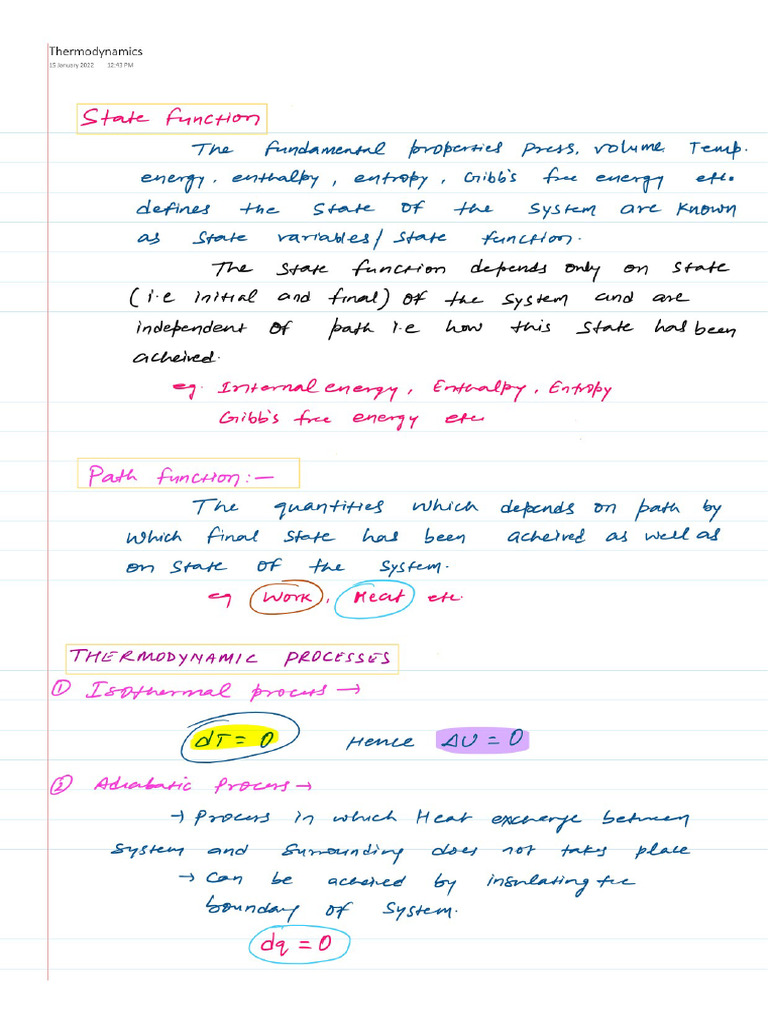 Thermodynamics
15 January 2022 12:43 PM
State function
The fundamental properties press, volume. Temp.
energy, enthalpy, entropy, Gibb's free energy etc.
defines the state of the system are known
as state variables/state function.
The state function depends only on state
(i.e initial and final) of the system and are
independent of path i.e how this state has been
acheived.
eg. Internal energy, Enthalpy, Entropy
Gibb's free energy etc
Path function:-
The quantities which depends on path by
which final state has been acheived as well as
on state of the system.
eg Work, Heat etc.
THERMODYNAMIC PROCESSES
① Isothermal process →
dT = 0 Hence ΔU = 0
② Adiabatic Process →
→ Process in which Heat exchange between
system and surrounding does not takes place
→ Can be acheived by insulating the
boundary of system.
dq = 0